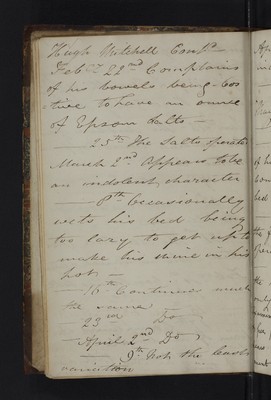 Hugh Mitchell Cont'd —
Feb'y 22nd Complains
of his bowels being Cos
tive to have an ounce
of Epsom Salts —
25th The Salts operated
March 2nd Appears to be
an indolent character
— 8th Occasionally
wets his bed being
too lazy to get up to
make his urine in his
pot —
16th Continues much
the same
23rd Do
April 2nd Do
— 9th Not the least
variation